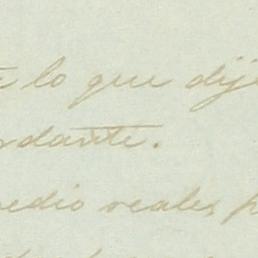 lo que dij
rdante.
edio reales p